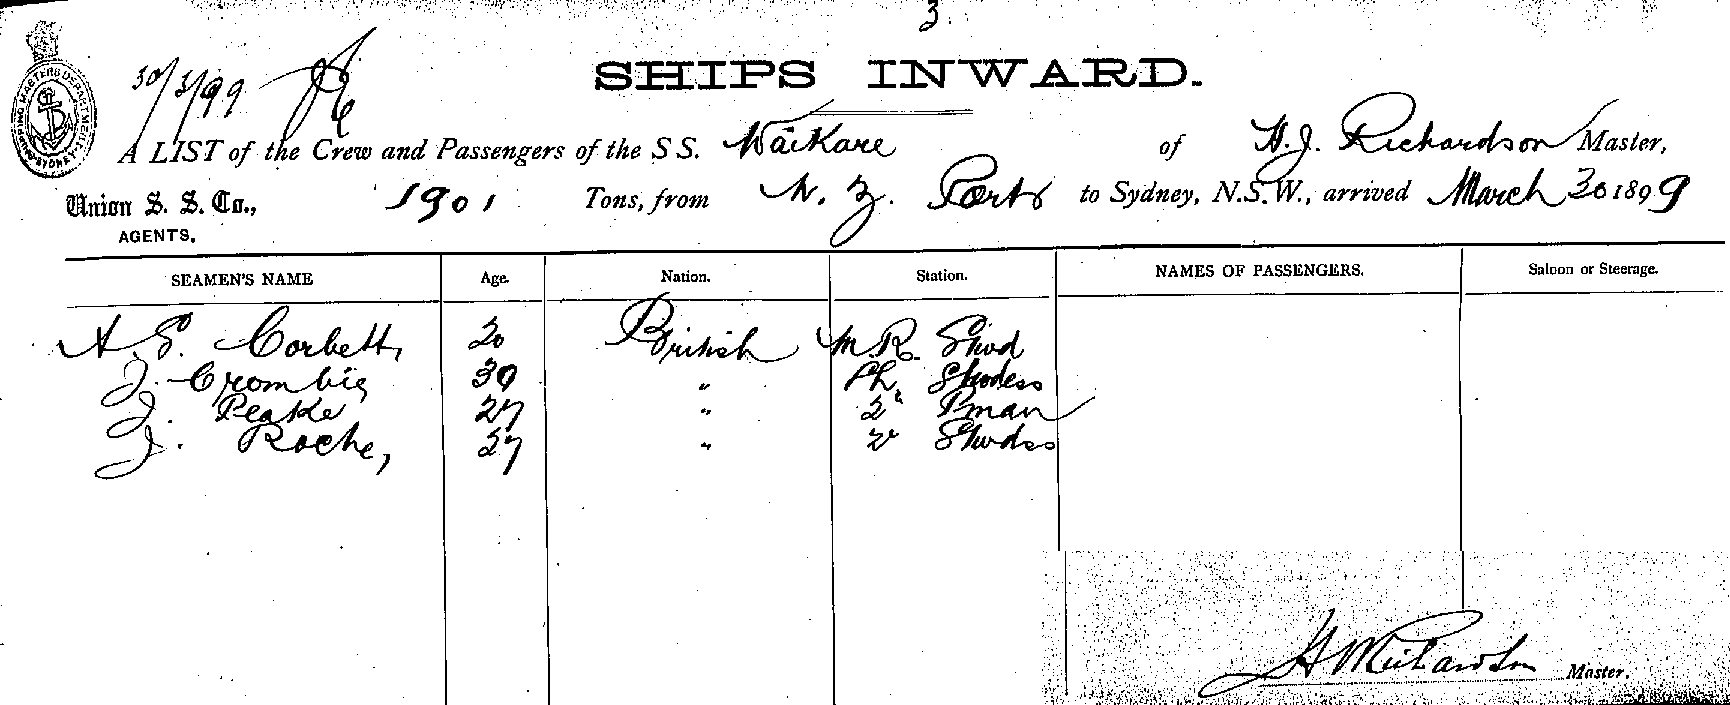 3.
30/3/99
SHIPS INWARD.
A LIST of the Crew and Passengers of the S S. Waikare of H. J. Richardson Master,
Union S. S. Co., 1901 Tons, from N. Z. Ports to Sydney, N.S.W., arrived March 30 1899
AGENTS.
SEAMEN'S NAME Age. Nation. Station. NAMES OF PASSENGERS. Saloon or Steerage.
A. E. Corbett, 20 British M. R. Stwd
J. Crombie 30 " Ch. Stwdess
J. Peake 27 " 2" Pman
J. Roche, 27 " 2" Stwdss
Richardson Master.